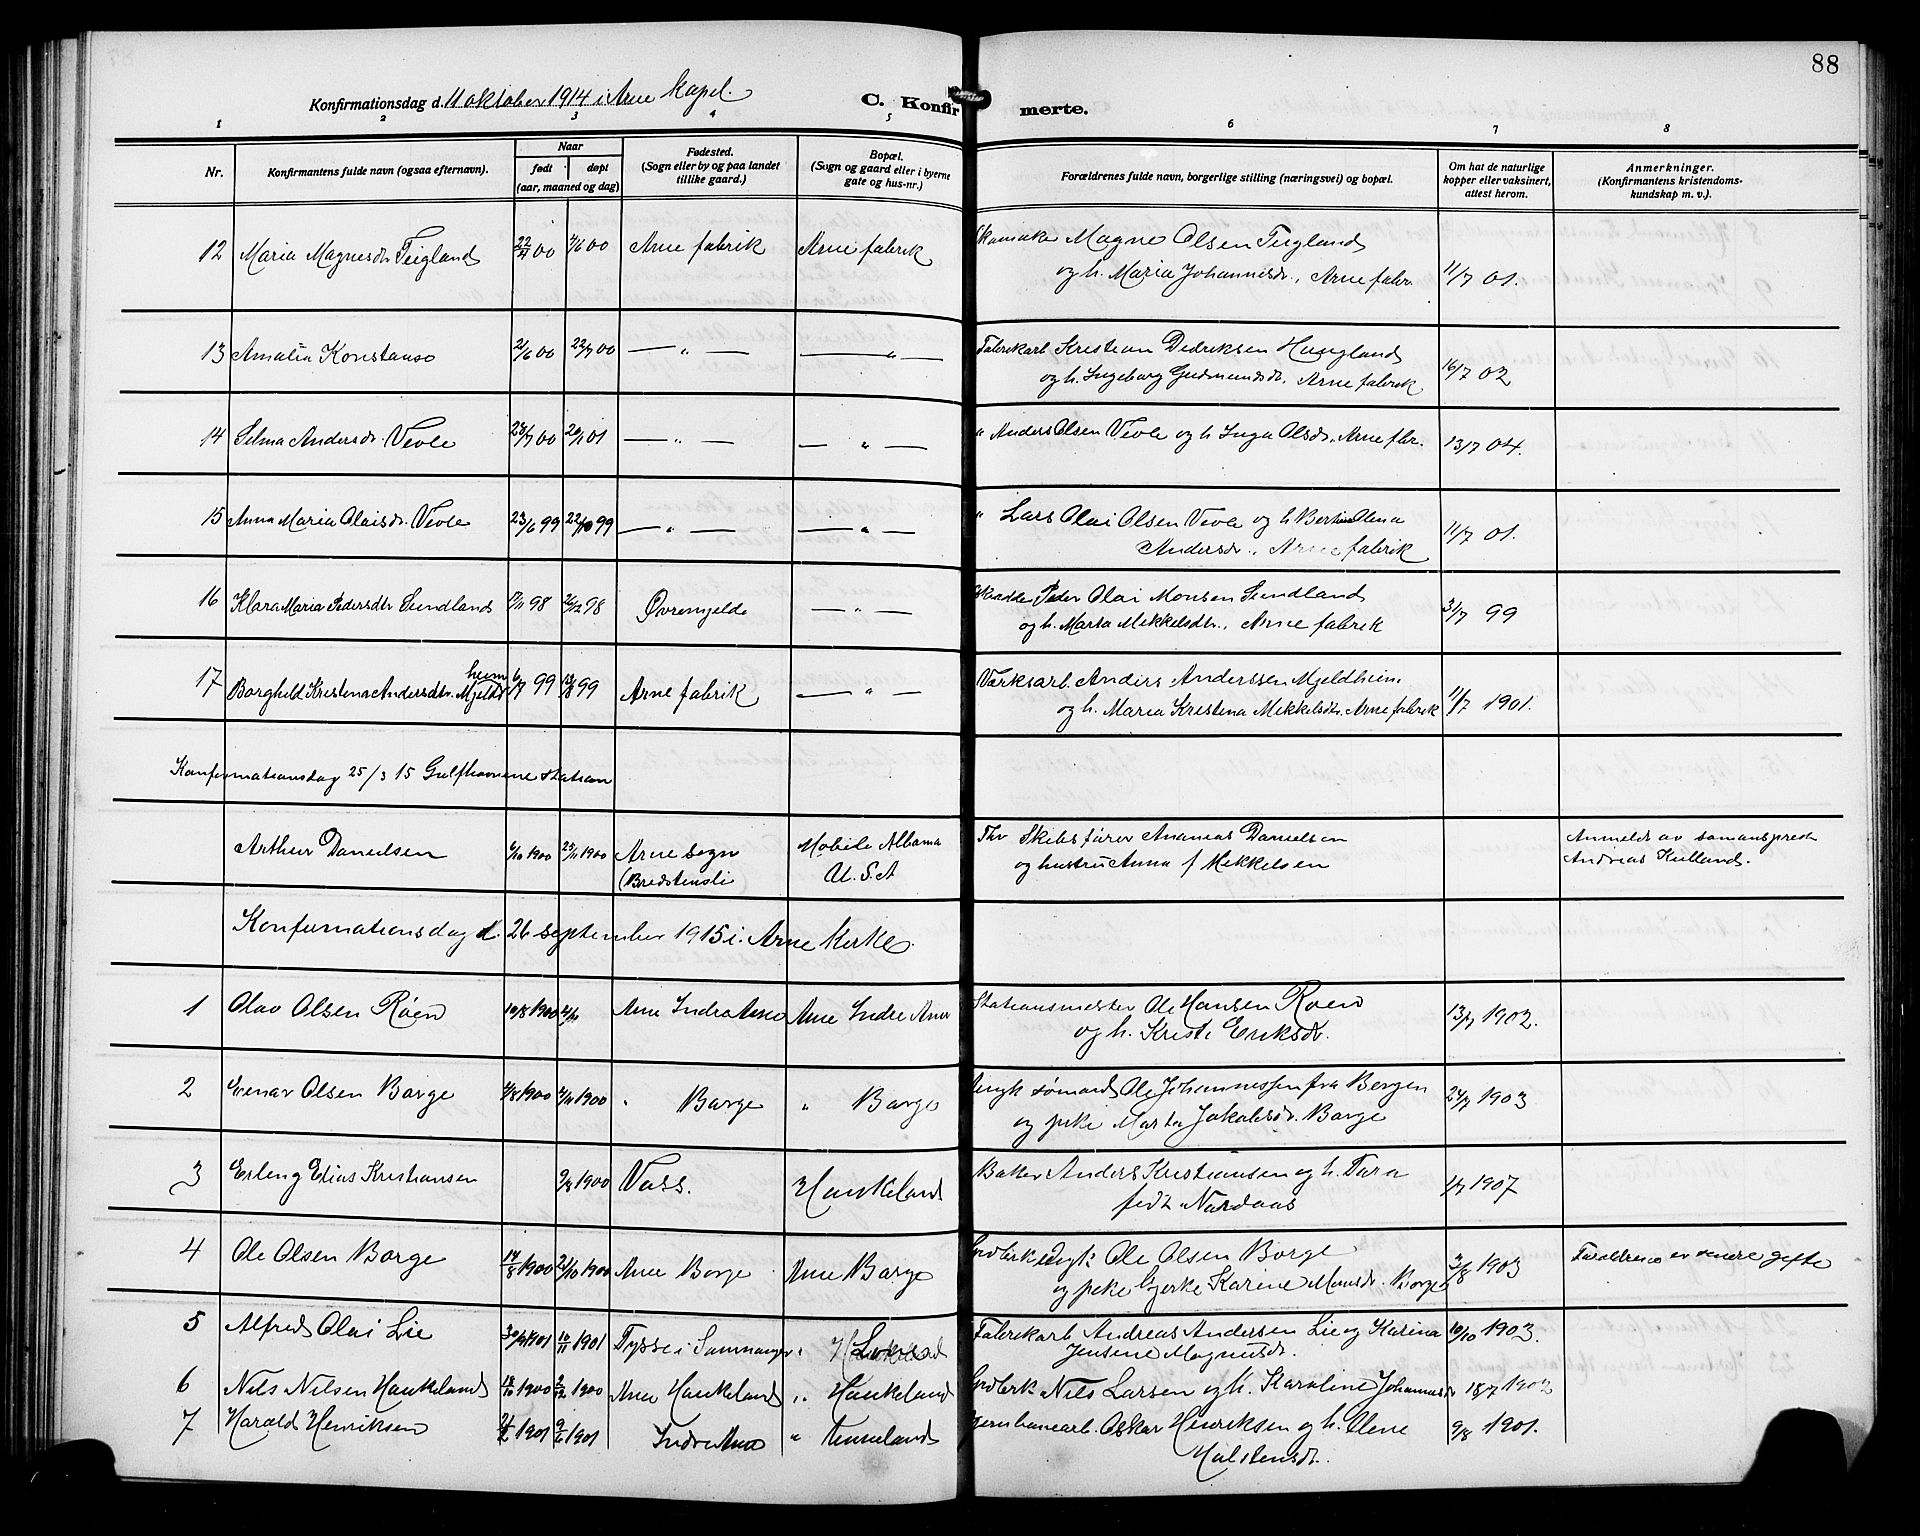 88
Konfirmationsdag d. 11 oktober 1914 i Arne Kapel.
C. Konfirmerte.
1 2 3 4 5 6 7 8
Nr.
Konfirmantens fulde navn (ogsaa efternavn).
Naar
født
døpt
(aar, maaned og dag)
Fødested.
(Sogn eller by og paa landet
tillike gaard.)
Bopæl.
(Sogn og gaard eller i byerne
gate og hus-nr.)
Forældrenes fulde navn, borgerlige stilling (næringsvei) og bopæl.
Om hat de naturlige
kopper eller vaksinert,
attest herom.
Anmerkninger.
(Konfirmantens kristendoms-
kundskap m. v.)
12 Maria Magnesdr Teigland 22/4 00 4/6 00 Arne fabrik Arne fabrik Magne Olsen Teigland
og h. Maria Johannesdr., Arne fabr. 11/7 01.
13 Amalia Konstanse 21/6 00 22/7 00 — " — — " — Fabrikarb Kristian Dedriksen Haugland
og h. Ingeborg Gudmundsdr. Arne fabrik 16/7 02
14 Selma Andersdr. Vevle 28/7 00 20/1 01 — " — — " — " Anders Olsen Vevle og h Inga Olsdr. Arne fbr. 13/7 04.
15 Anna Maria Olaisdr. Vevle 23/6 99 22/10 99 — " — — " — " Lars Olai Olsen Vevle og h Bertine Olena
Andersdr., Arne fabrik 11/7 01.
16 Klara Maria Pedersdtr Sundland 17/11 98 26/12 98 Øvremjelde — " — Peder Olai Monsen Sundland
og h. Marta Mekkelsdtr., Arne fabrik 31/7 99
17 Borghild Kristina Andersdtr. Mjeldheim 6/7 99 13/8 99 Arne fabrik — " — Værksarb. Anders Anderssen Mjeldheim
og h. Maria Kristina Mekkelsdtr. Arne fabrik 11/7 1901.
Konfirmationsdag 25/3 15 Gulfhavnene station
Arthur Danielsen 6/10 1900 25/11 1900 Arne sogn Mobile Albama Fhv Skibsfører Ananias Danielsen Anmeldt av sømansprest
(Bredstensli U. S. A og hustru Anna f Mekkelsen Andreas Kulland.
Konfirmationsdag d. 26 september 1915 i Arne Kirke
1 Olav Olsen Røen 10/8 1900 Arne Indre Arne Arne Indre Arne Stationsmester Ole Hansen Røen
og h. Kristi Eriksdr. 13/7 1902.
2 Einar Olsen Borge 4/8 1900 4/11 1900 " Borge " Borge ungk sømand Ole Johannessen fra Bergen
og pike Marta Jakobsdr. Borge 24/7 1903
3 Erling Elias Kristiansen 9/9 1900 Voss. Haukeland Baker Anders Kristiansen og h. Tora
født Nordaas 1907
4 Ole Olsen Borge 14/8 1900 21/10 1900 Arne Borge Arne Borge Ole Olsen Borge
og pike Gjerke Karine Monsdr. Borge 3/8 1903 Forældrene er senere gifte
5 Alfred Olai Lie 30/9 1901 10/11 1901 Tysse i Samnanger " Fabrikarb Andreas Andersen Lie og Karina
Jensine Magnusdr. 10/10 1903.
6 Nils Nilsen Haukeland 18/10 1900 2/12 1900 Arne Haukeland " Haukeland Grdbrk Nils Larsen og h. Karoline Johannesdr 18/7 1902
7 Harald Henriksen 21/2 1901 9/6 1901 Indre Arne " Unneland Jernbanearb. Oskar Henriksen og h. Elene
Halstensdr. 9/8 1901.